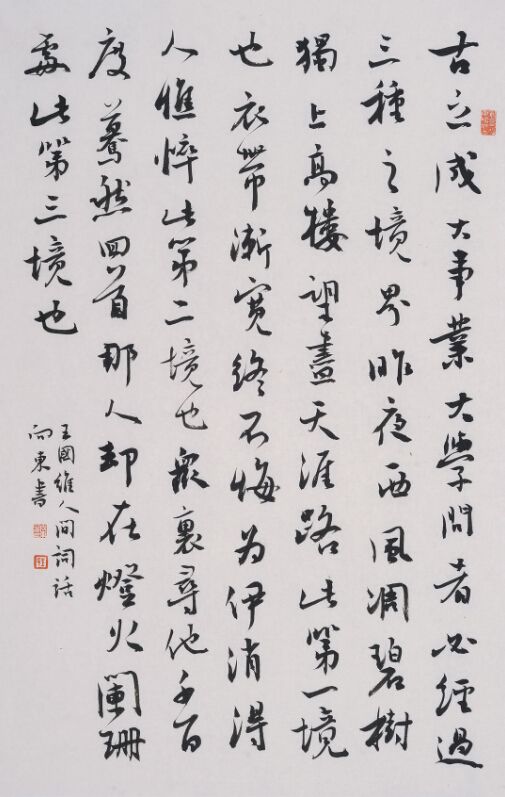 古之成大事業大學問者必經過
三種之境界昨夜西風凋碧樹
獨上高樓望盡天涯路此第一境
也衣帶漸寬終不悔為伊消得
人憔悴此第二境也眾裏尋他千百
度驀然回首那人却在燈火闌珊
處此第三境也
王國維人間詞話
向東書